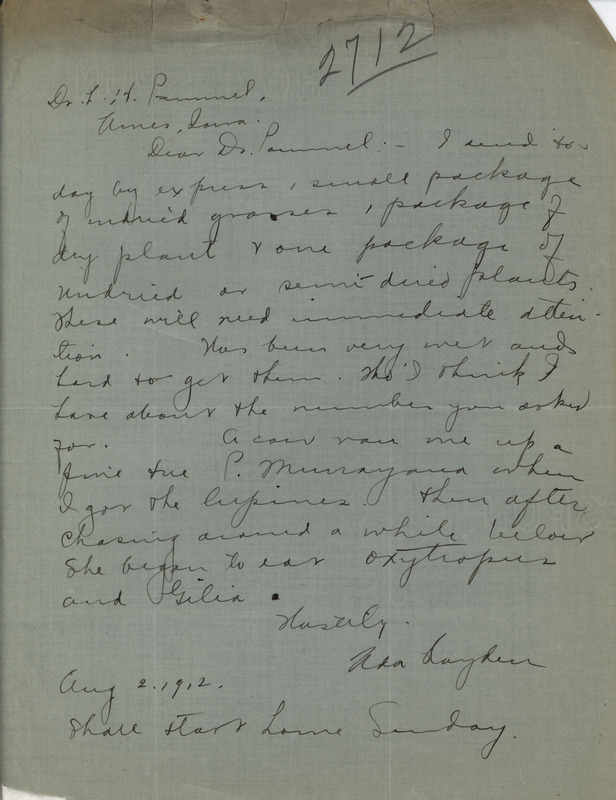 2712
Dr. L. H. Pammel,
Ames, Iowa.
Dear Dr. Pammel: - I send to-
day by express 1 small package
of undried grasses, 1 package of
dry plant & one package of
undried or semi-dried plants.
These will need immediate atten-
tion. Has been very wet and
hard to get them. Tho' I think I
have about the number you asked
for. A cow ran me up a
fine tree P. Murrayana when
I got the lupines. Then after
chasing around a while below
she began to eat Oxytropus
and Gilia.
Hastily.
Ada Hayden
Aug 2. 1912.
Shall start home Sunday.